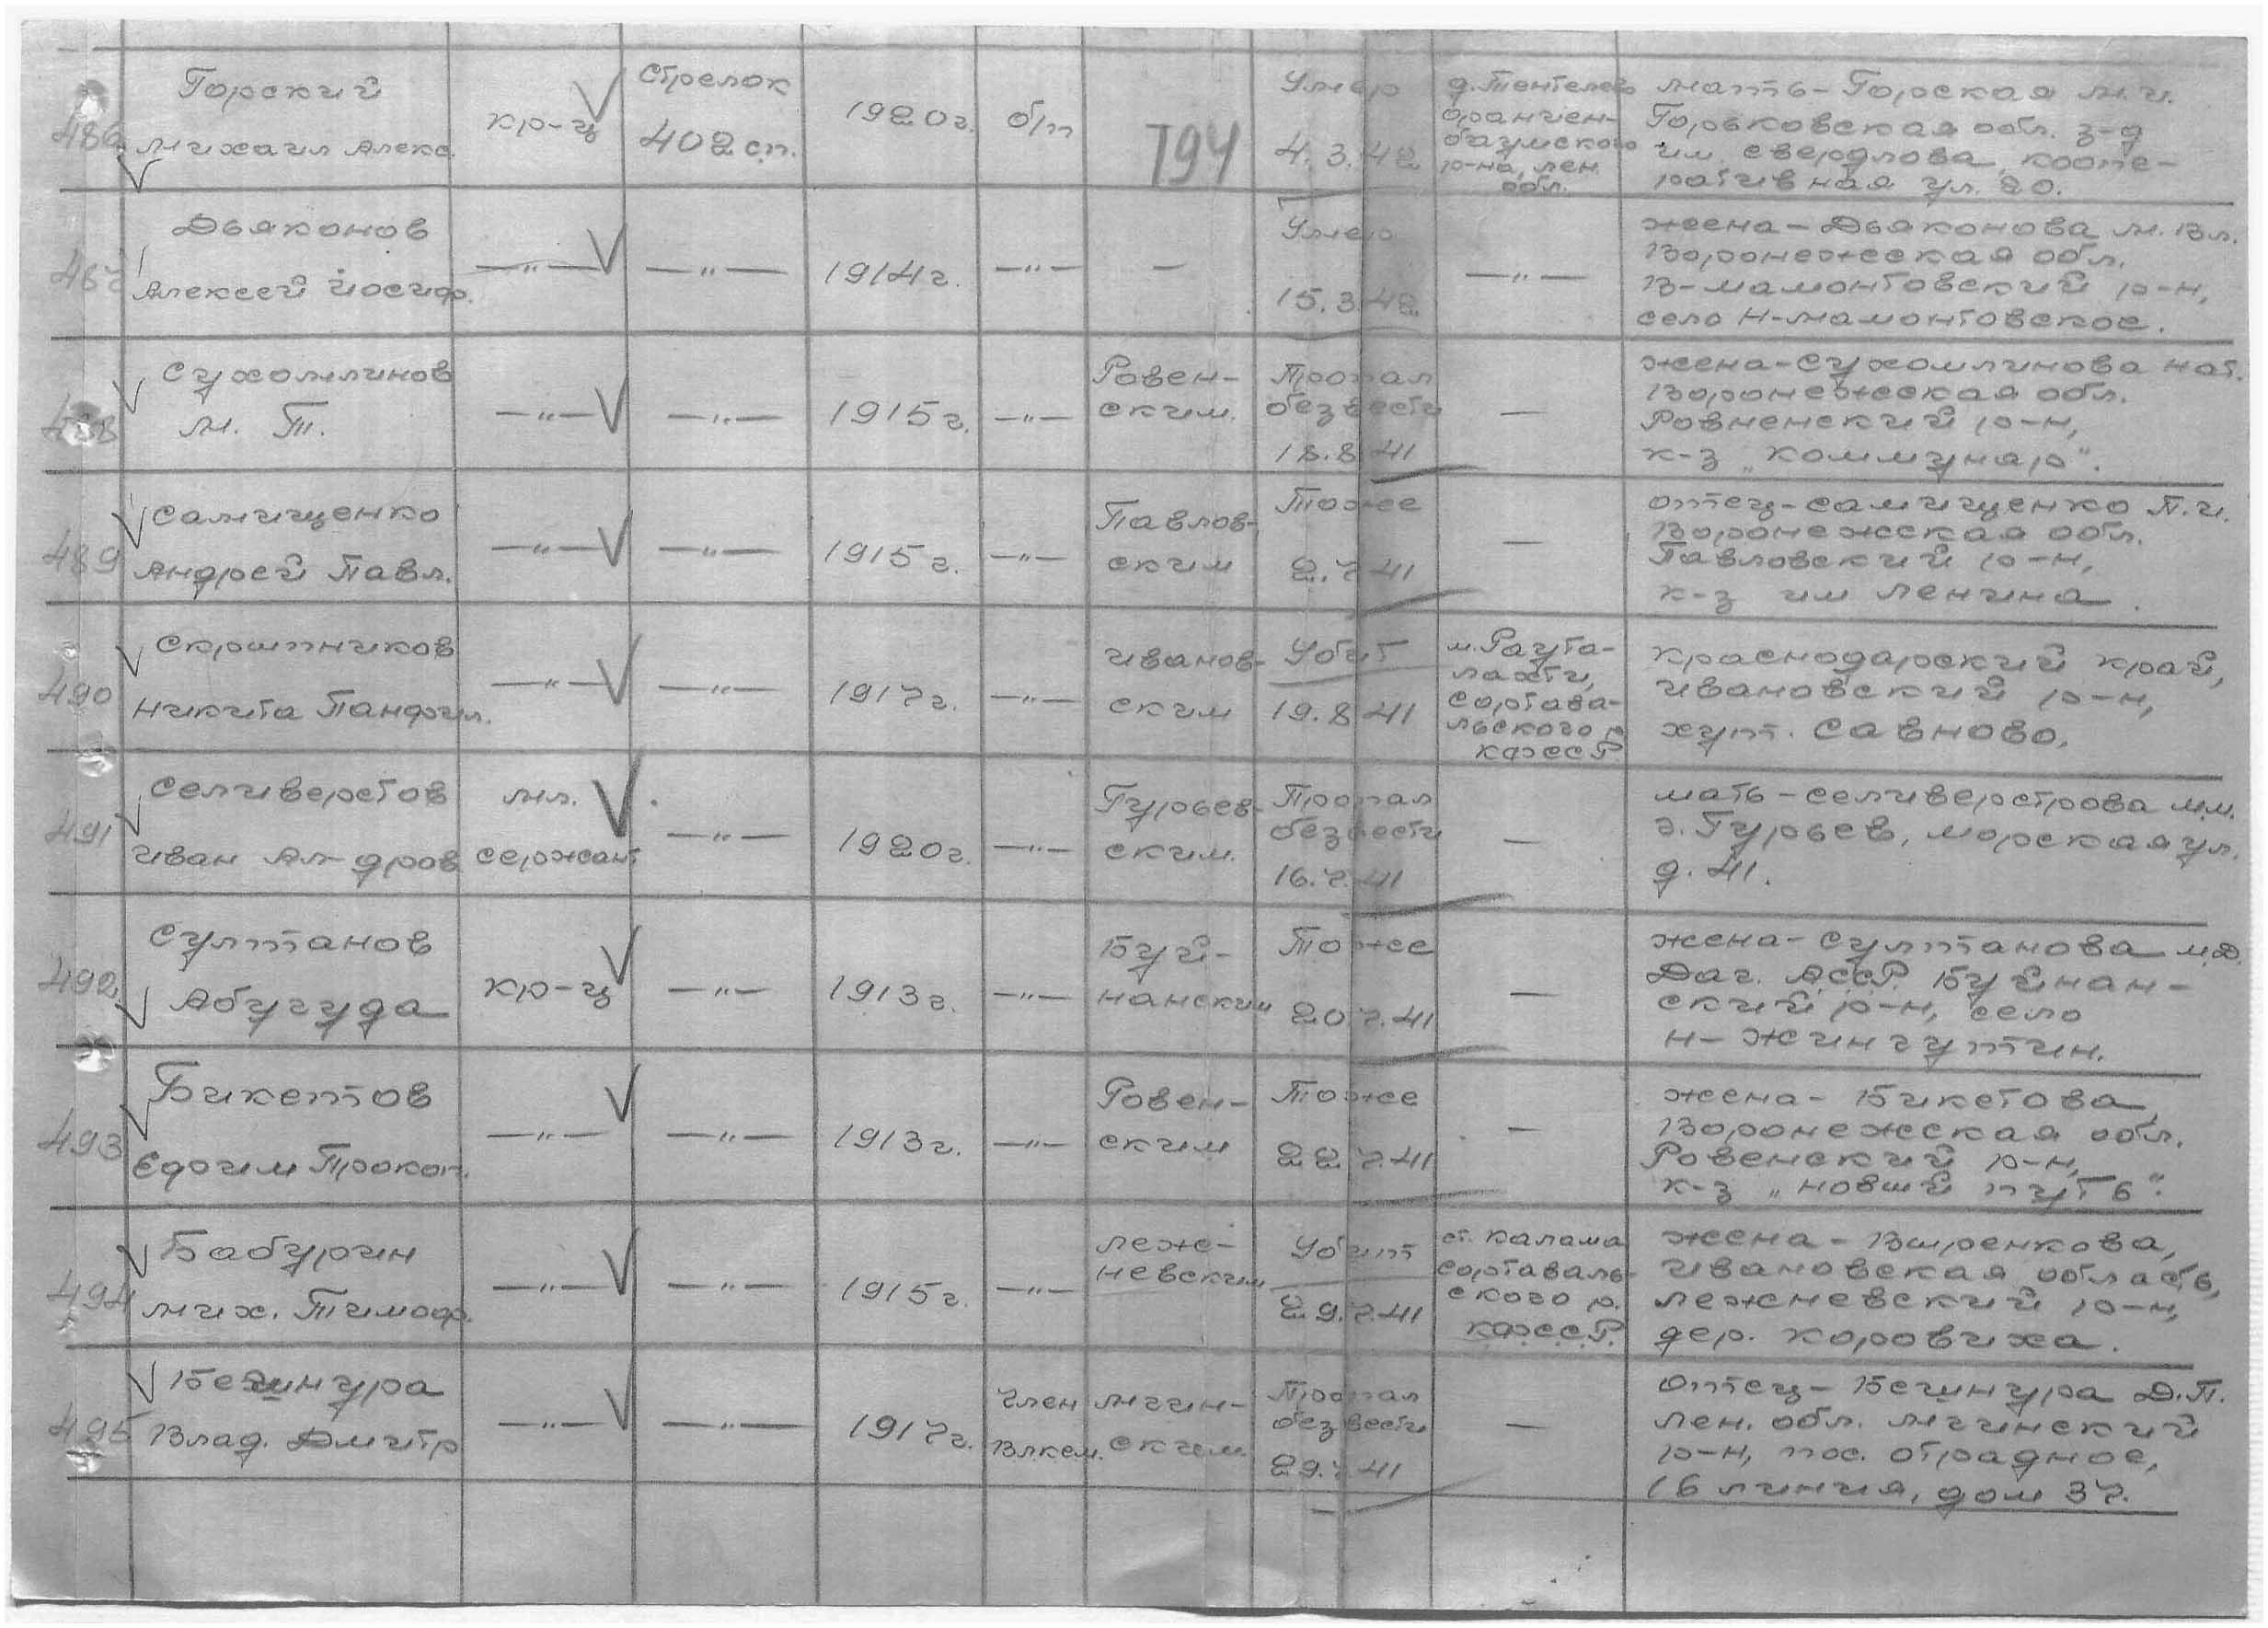 486
Горский
Михаил Алекс.
кр-ц
Стрелок
402 сп.
1920г.
б/п
194
Умер
4.3.42
д. Тентелево
Ораниен-
баумского
р-на, Лен.
обл.
мать - Горская М.И.
Горьковская обл. з-д
им. Свердлова, коопе-
ративная ул. 20.
487
Дьяконов
Алексей Йосиф.
—"—
—"—
1914г.
—"—
—
Умер
15.3.42
—"—
жена - Дьяконова М. Вл.
Воронежская обл.
В-Мамонтовский р-н,
село Н-Мамонтовское.
488
Сухомлинов
М. Т.
—"—
—"—
1915г.
—"—
Ровен-
ским.
Пропал
без вести
18.8.41
—
жена - Сухомлинова Нат.
Воронежская обл.
Ровненский р-н,
к-з „Коммунар".
489
Самищенко
Андрей Павл.
—"—
—"—
1915г.
—"—
Павлов-
ским
Тоже
2.7.41
—
отец - Самищенко П.И.
Воронежская обл.
Павловский р-н,
к-з им Ленина.
490
Скрыпников
Никита Панфил.
—"—
—"—
1917г.
—"—
Иванов-
ским
Убит
19.8.41
м. Раута-
лахти,
Сортава-
льского р
КФССР
Краснодарский край,
Ивановский р-н,
хут. Савново.
491
Селиверстов
Иван Ал-дров
мл.
сержант
—"—
1920г.
—"—
Гурьев-
ским.
Пропал
без вести
16.7.41
—
мать - Селиверстрова М.М.
г. Гурьев, Морская ул.
д. 41.
492
Султанов
Абугуда
кр-ц
—"—
1913г.
—"—
Буй-
нанским
Тоже
20.7.41
—
жена - Султанова М.Д.
Даг. АССР. Буйнан-
ский р-н, село
Н-Жингутин.
493
Бикетов
Ефим Прокоп.
—"—
—"—
1913г.
—"—
Ровен-
ским
Тоже
22.7.41
—
жена - Бикетова,
Воронежская обл.
Ровенский р-н,
к-з „Новый путь".
494
Бабурин
Мих. Тимоф.
—"—
—"—
1915г.
—"—
Леже-
невским
Убит
29.7.41
ст. Калама
Сортаваль-
ского р.
КФССР.
жена - Выренкова,
Ивановская область,
Лежневский р-н,
дер. Коровиха.
495
Бегингура
Влад. Дмитр
—"—
—"—
1917г.
Член
ВЛКСМ.
Мгин-
ским.
Пропал
без вести
29.7.41
—
отец - Бегингура Д.П.
Лен. обл. Мгинский
р-н, пос. Отрадное,
16 линия, дом 37.